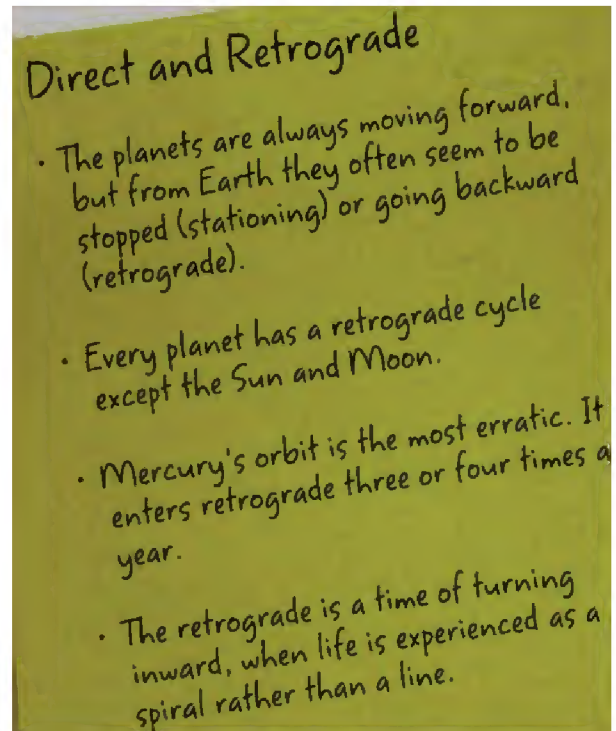 Direct and Retrograde
· The planets are always moving forward,
but from Earth they often seem to be
stopped (stationing) or going backward
(retrograde).
· Every planet has a retrograde cycle
except the Sun and Moon.
· Mercury's orbit is the most erratic. It
enters retrograde three or four times a
year.
· The retrograde is a time of turning
inward, when life is experienced as a
spiral rather than a line.